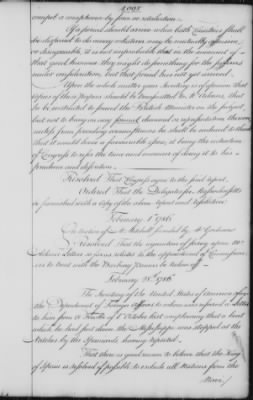 compel a compliance by fear or retaliation.
If a period should arrive when both Countries shall
be disposed to do away whatever may be mutually offensive,
or disagreeable, it is not improbable that in the moment of
that good humour they might do something for the persons
under confiscation, but that period has not yet arrived.
Upon the whole matter your Secretary is of opinion that
Copies of these Papers should be transmitted to Mr Adams, that
he be instructed to sound the British Minister on the subject,
but not to bring in any formal demand or representation thereon,
until from preceding circumstances he shall be induced to think
that it would have a favourable issue, it being the intention
of Congress to refer the time and manner of doing it to his
prudence and discretion.
Resolved That Congress agree to the said report.
Ordered That the Delegates for Massachusetts
be furnished with a Copy of the above report and resolution
February 1st 1786
On motion of Mr Mitchell seconded by Mr Grayson
Resolved That the injunction of secrecy upon Mr
Adams's Letter so far as relates to the appointment of Commissioners
to treat with the Barbary Powers be taken off.
February 28th 1786
The Secretary of the United States of America for
the Department of Foreign Affairs to whom was referred a Letter
to him from of October last complaining that a boat
which he had sent down the Mississippi was stopped at the
Natches by the Spaniards having reported
That there is good reason to believe that the King
of Spain is resolved if possible to exclude all Nations from the